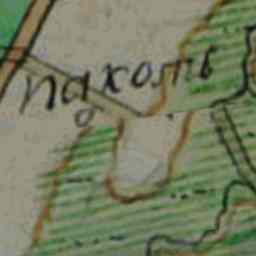 пахоть